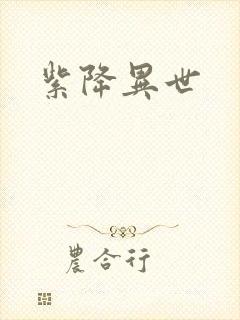 紫降異世
農合行